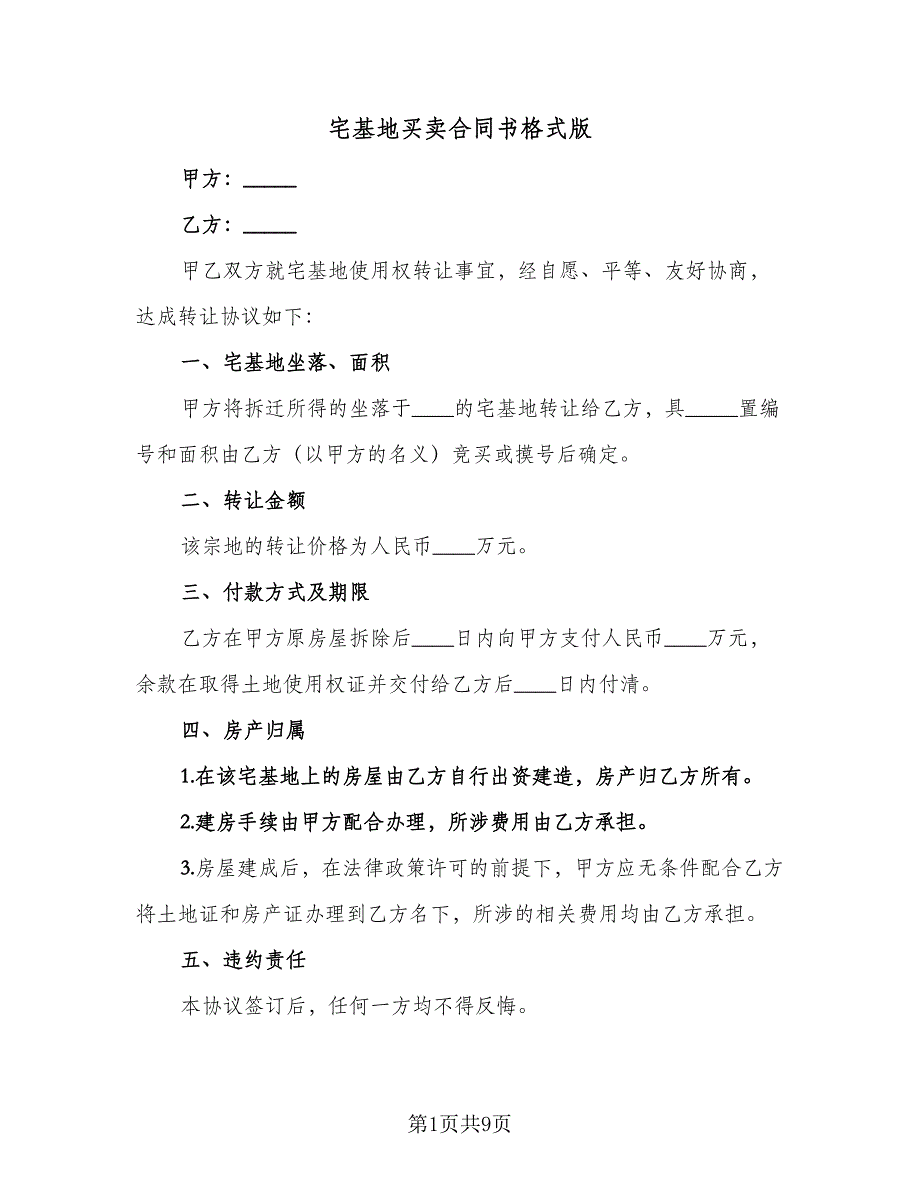 宅基地买卖合同书格式版
甲方：_____
乙方：_____
甲乙双方就宅基地使用权转让事宜，经自愿、平等、友好协商，
达成转让协议如下：
一、宅基地坐落、面积
甲方将拆迁所得的坐落于____的宅基地转让给乙方，具_____置编
号和面积由乙方（以甲方的名义）竞买或摸号后确定。
二、转让金额
该宗地的转让价格为人民币____万元。
三、付款方式及期限
乙方在甲方原房屋拆除后____日内向甲方支付人民币____万元，
余款在取得土地使用权证并交付给乙方后____日内付清。
四、房产归属
1.在该宅基地上的房屋由乙方自行出资建造，房产归乙方所有。
2.建房手续由甲方配合办理，所涉费用由乙方承担。
3.房屋建成后，在法律政策许可的前提下，甲方应无条件配合乙方
将土地证和房产证办理到乙方名下，所涉的相关费用均由乙方承担。
五、违约责任
本协议签订后，任何一方均不得反悔。
第1页共9页